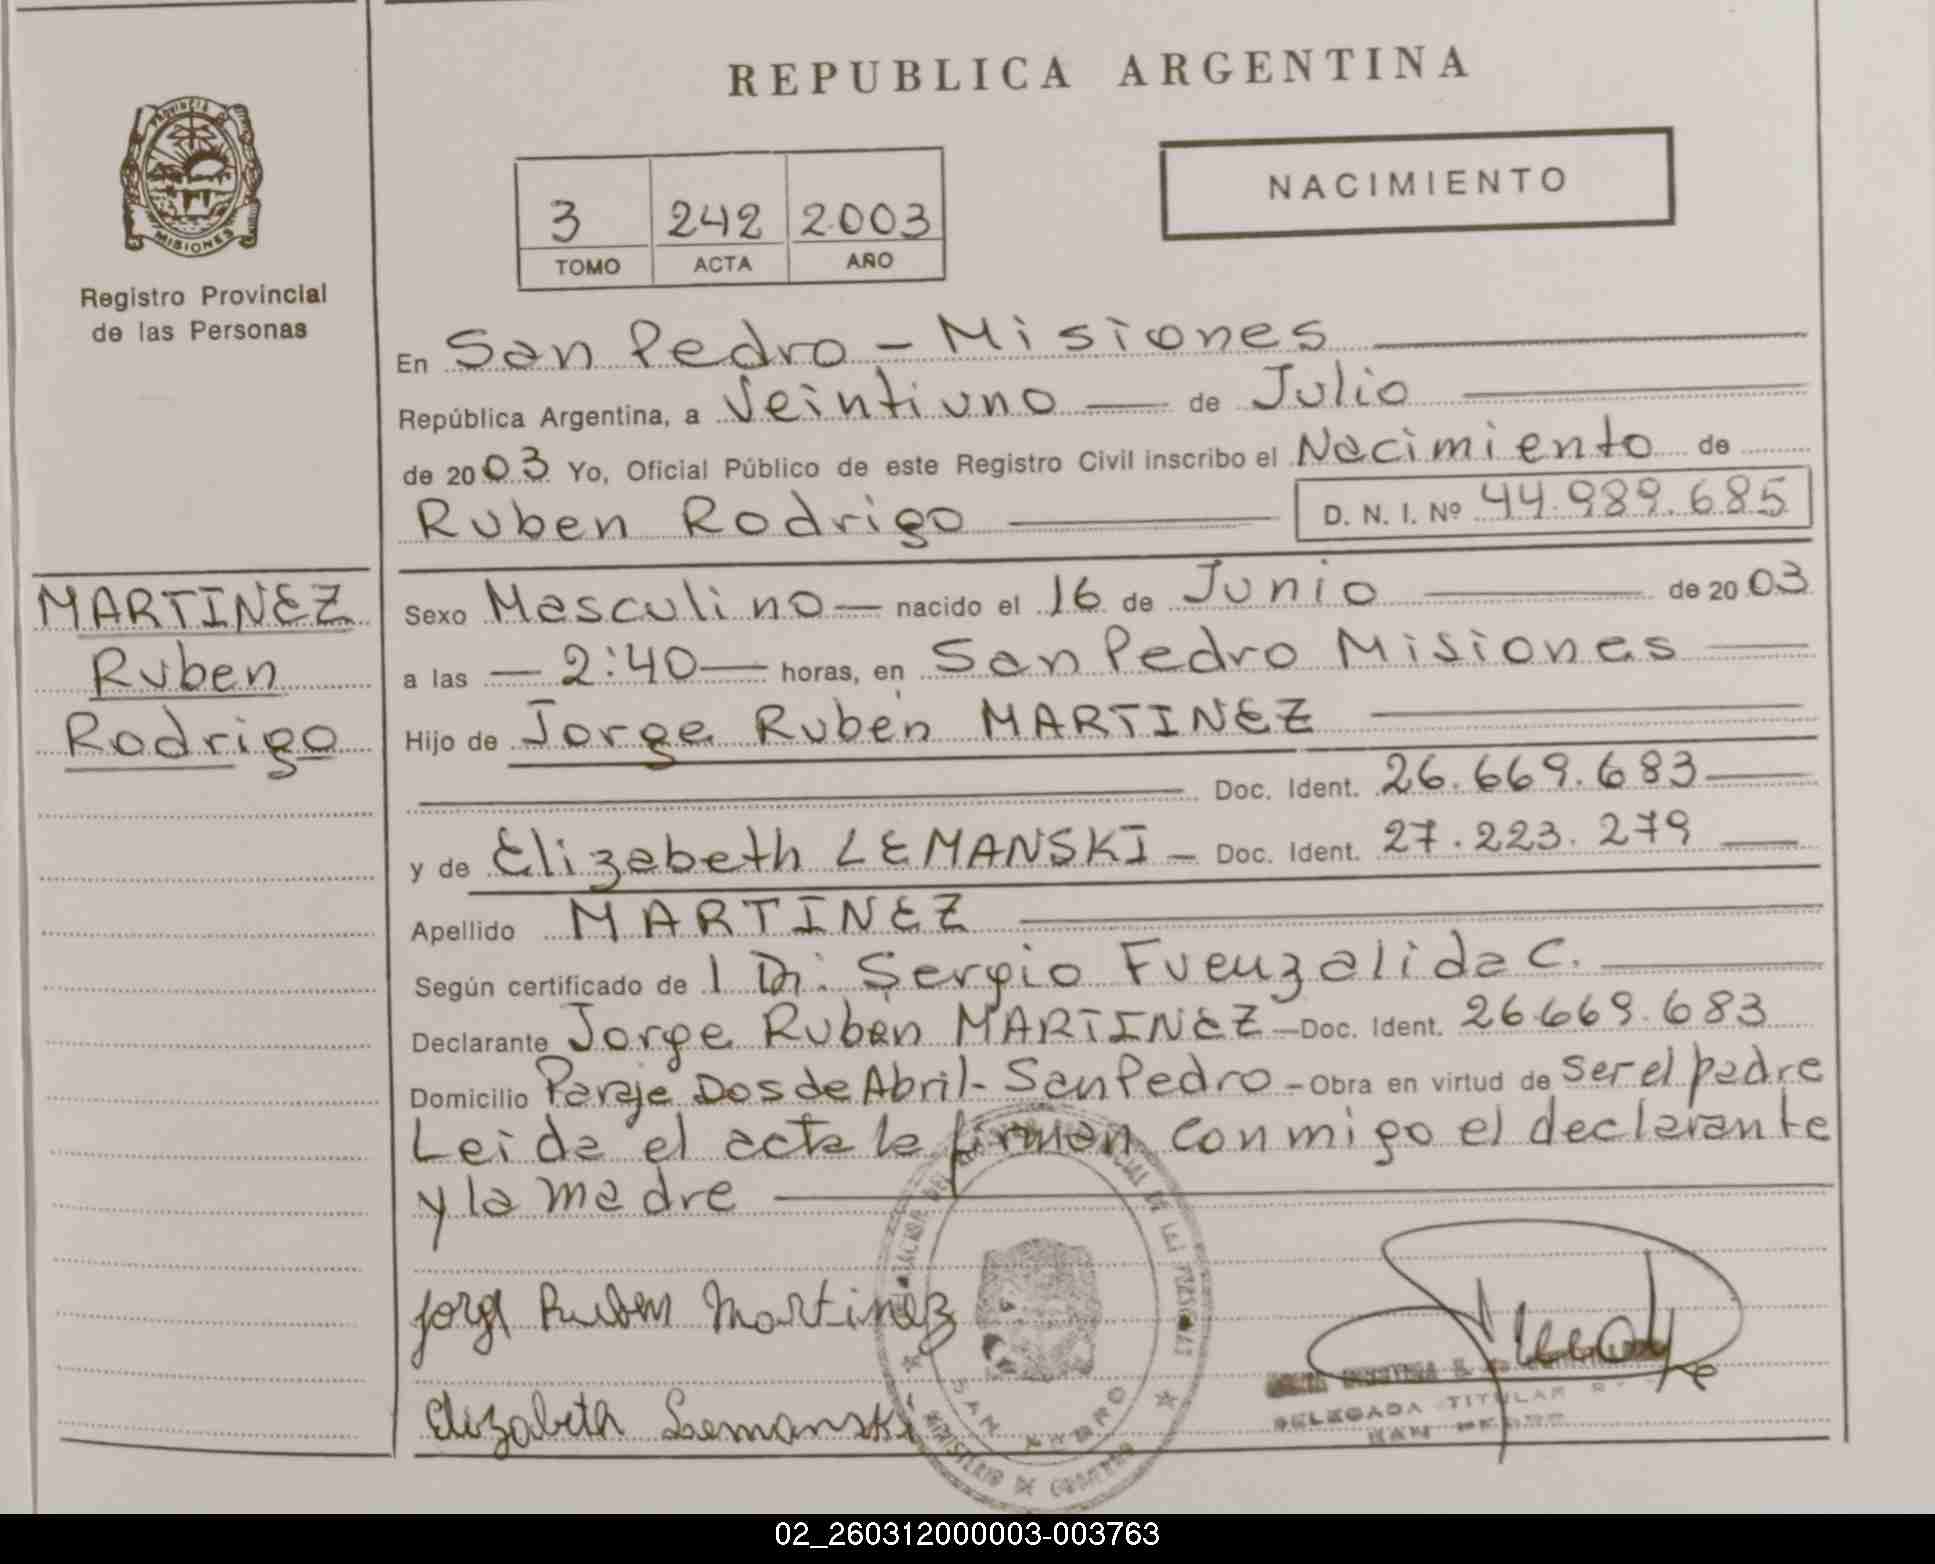 REPUBLICA ARGENTINA
PROVINCIA
MISIONES
Registro Provincial
de las Personas
NACIMIENTO
3 242 2003
TOMO ACTA AÑO
En San Pedro - Misiones
República Argentina, a Veintiuno de Julio
de 2003 Yo, Oficial Público de este Registro Civil inscribo el Nacimiento de
Ruben Rodrigo D. N. I. Nº 44.989.685
MARTINEZ
Ruben
Rodrigo
Sexo Masculino nacido el 16 de Junio de 2003
a las 2:40 horas, en San Pedro Misiones
Hijo de Jorge Rubén MARTINEZ
Doc. Ident. 26.669.683
y de Elizabeth LEMANSKI - Doc. Ident. 27.223.279
Apellido MARTINEZ
Según certificado de 1 Dr. Sergio Fuenzalida C.
Declarante Jorge Ruben MARTINEZ - Doc. Ident. 26.669.683
Domicilio Paraje Dos de Abril - San Pedro - Obra en virtud de ser el padre
Leida el acta la firman conmigo el declarante
y la madre
Jorge Ruben Martinez
Elizabeth Lemanski
SAN PEDRO
MINISTERIO DE GOBIERNO
DELEGADA TITULAR
SAN PEDRO
02_260312000003-003763